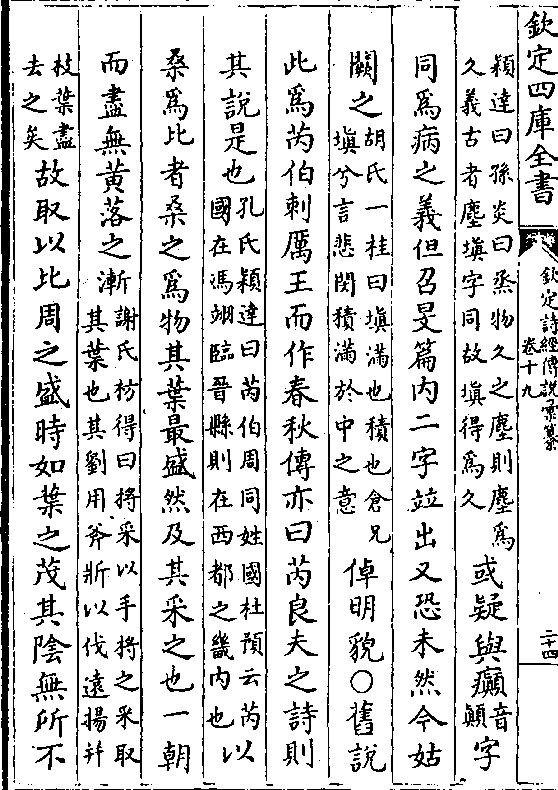 欽定四庫全書
欽定詩經傳說彙纂
卷十九
二十四
穎達曰孫炎曰烝物久之塵則塵為
久義古者塵填字同故填得為久
或疑與癲音顛字
同為病之義但召旻篇內二字竝出又恐未然今姑
闕之
胡氏一桂曰填滿也積也倉兄
填兮言悲閔積滿於中之意
倬明貌○舊說
此為芮伯刺厲王而作春秋傳亦曰芮良夫之詩則
其說是也
孔氏穎達曰芮伯周同姓國杜預云芮
國在馮翊臨晉縣則在西都之畿內也
以
桑為比者桑之為物其葉最盛然及其采之也一朝
而盡無黃落之漸
謝氏枋得曰捋采以手捋之采取
其葉也其劉用斧斨以伐遠揚并
枝葉盡
去之矣
故取以比周之盛時如葉之茂其陰無所不